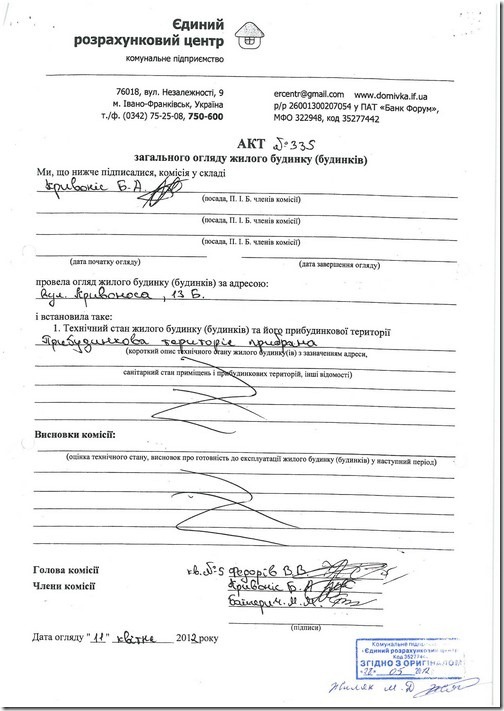 Єдиний
розрахунковий центр
комунальне підприємство
76018, вул. Незалежності, 9
м. Івано-Франківськ, Україна
т./ф. (0342) 75-25-08, 750-600
ercentr@gmail.com www.domivka.if.ua
р/р 26001300207054 у ПАТ «Банк Форум»,
МФО 322948, код 35277442
АКТ №335
загального огляду жилого будинку (будинків)
Ми, що нижче підписалися, комісія у складі
Кривоніс Б.А.
(посада, П. І. Б. членів комісії)
(посада, П. І. Б. членів комісії)
(посада, П. І. Б. членів комісії)
(дата початку огляду) (дата завершення огляду)
провела огляд жилого будинку (будинків) за адресою:
вул. Кривоноса, 13 Б.
і встановила таке:
1. Технічний стан жилого будинку (будинків) та його прибудинкової території
Прибудинкова територіє прибрана
(короткий опис технічного стану жилого будинку(ів) з зазначенням адреси,
санітарний стан приміщень і прибудинкових територій, інші відомості)
Висновки комісії:
(оцінка технічного стану, висновок про готовність до експлуатації жилого будинку (будинків) у наступний період)
Голова комісії кв.№5 Федорів В.В.
Члени комісії Кривоніс Б.А.
М.М.
(підписи)
Дата огляду "11" квітне 2012 року
Комунальне
"Єдиний розрахунковий центр"
Код 3527744
ЗГІДНО З ОРИГІНАЛОМ
05 2012
М. Д